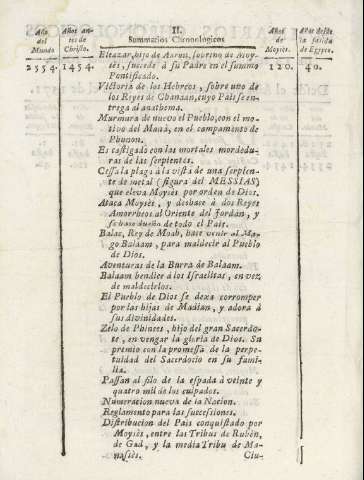 II.
Año del Mundo. Años antes de Christo. Summarios Chronologicos Años de Moysès. Años desde la salida de Egypto.
2554. 1454. 120. 40.
Eleazar, hijo de Aaron, sobrino de Moy-
sès, sucede à su Padre en el summo
Pontificado.
Victoria de los Hebreos, sobre uno de
los Reyes de Chanaan, cuyo Pais se en-
trega al anathema.
Murmura de nuevo el Pueblo, con el mo-
tivo del Manà, en el campamento de
Phunon.
Es castigado con las mortales mordedu-
ras de las serpientes.
Cessa la plaga à la vista de una serpien-
te de metal (figura del MESSIAS)
que eleva Moysès por orden de Dios.
Ataca Moysès, y desbace à dos Reyes
Amorrheos al Oriente del Jordan, y
se hace dueño de todo el Pais.
Balac, Rey de Moab, hace venir al Ma-
go Balaam, para maldecir al Pueblo
de Dios.
Aventuras de la Burra de Balaam.
Balaam bendice à los Israelitas, en vez
de maldecirlos.
El Pueblo de Dios se dexa corromper
por las hijas de Madian, y adora à
sus divinidades.
Zelo de Phinees, hijo del gran Sacerdo-
te, en vengar la gloria de Dios. Su
premio con la promessa de la perpe-
tuidad del Sacerdocio en su fami-
lia.
Passan al filo de la espada à veinte y
quatro mil de los culpados.
Numeracion nueva de la Nacion.
Reglamento para las successiones.
Distribucion del Pais conquistado por
Moysès, entre las Tribus de Rubèn,
de Gad, y la media Tribu de Ma-
nassès. Ciu-